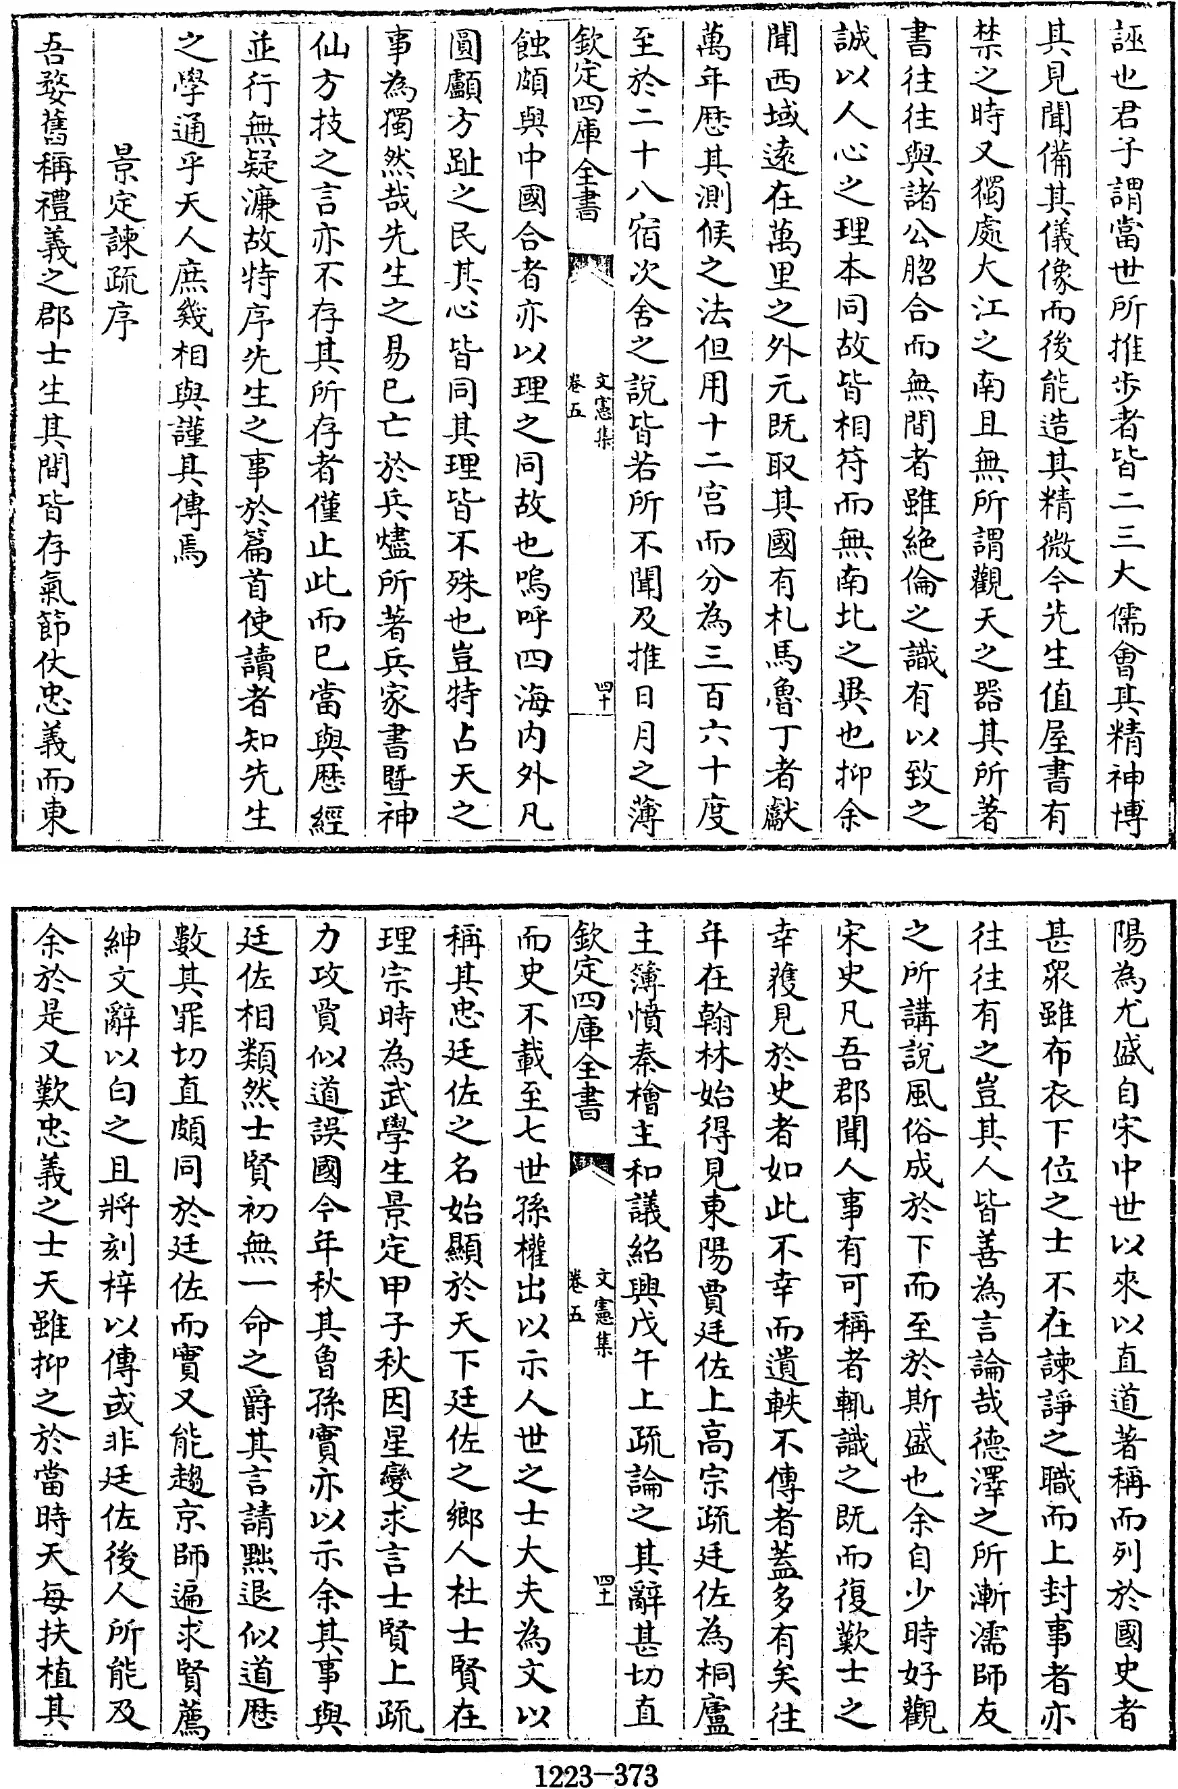 誣也君子謂當世所推歩者皆二三大儒會其精神博
其見聞備其儀像而後能造其精微今先生值屋書有
禁之時又獨處大江之南且無所謂觀天之器其所著
書往往與諸公脗合而無間者雖絶倫之識有以致之
誠以人心之理本同故皆相符而無南北之異也抑余
聞西域遠在萬里之外元既取其國有札馬魯丁者獻
萬年厯其測候之法但用十二宫而分為三百六十度
至於二十八宿次舍之說皆若所不聞及推日月之薄
欽定四庫全書
文憲集
卷五
四十
蝕頗與中國合者亦以理之同故也嗚呼四海内外凡
圓顱方趾之民其心皆同其理皆不殊也豈特占天之
事為獨然哉先生之易已亡於兵燼所著兵家書暨神
仙方技之言亦不存其所存者僅止此而已當與厯經
並行無疑濂故特序先生之事於篇首使讀者知先生
之學通乎天人庶幾相與謹其傳焉
景定諫疏序
吾婺舊稱禮義之郡士生其間皆存氣節仗忠義而東
陽為尤盛自宋中世以來以直道著稱而列於國史者
甚衆雖布衣下位之士不在諫諍之職而上封事者亦
往往有之豈其人皆善為言論哉德澤之所漸濡師友
之所講說風俗成於下而至於斯盛也余自少時好觀
宋史凡吾郡聞人事有可稱者輒識之既而復歎士之
幸獲見於史者如此不幸而遺軼不傳者蓋多有矣往
年在翰林始得見東陽賈廷佐上高宗疏廷佐為桐廬
主簿憤秦檜主和議紹興戊午上疏論之其辭甚切直
欽定四庫全書
文憲集
卷五
四十一
而史不載至七世孫權出以示人世之士大夫為文以
稱其忠廷佐之名始顯於天下廷佐之鄉人杜士賢在
理宗時為武學生景定甲子秋因星變求言士賢上疏
力攻賈似道誤國今年秋其曾孫實亦以示余其事與
廷佐相類然士賢初無一命之爵其言請黜退似道歴
數其罪切直頗同於廷佐而實又能趨京師遍求賢薦
紳文辭以白之且將刻梓以傳或非廷佐後人所能及
余於是又歎忠義之士天雖抑之於當時天每扶植其
1223-373